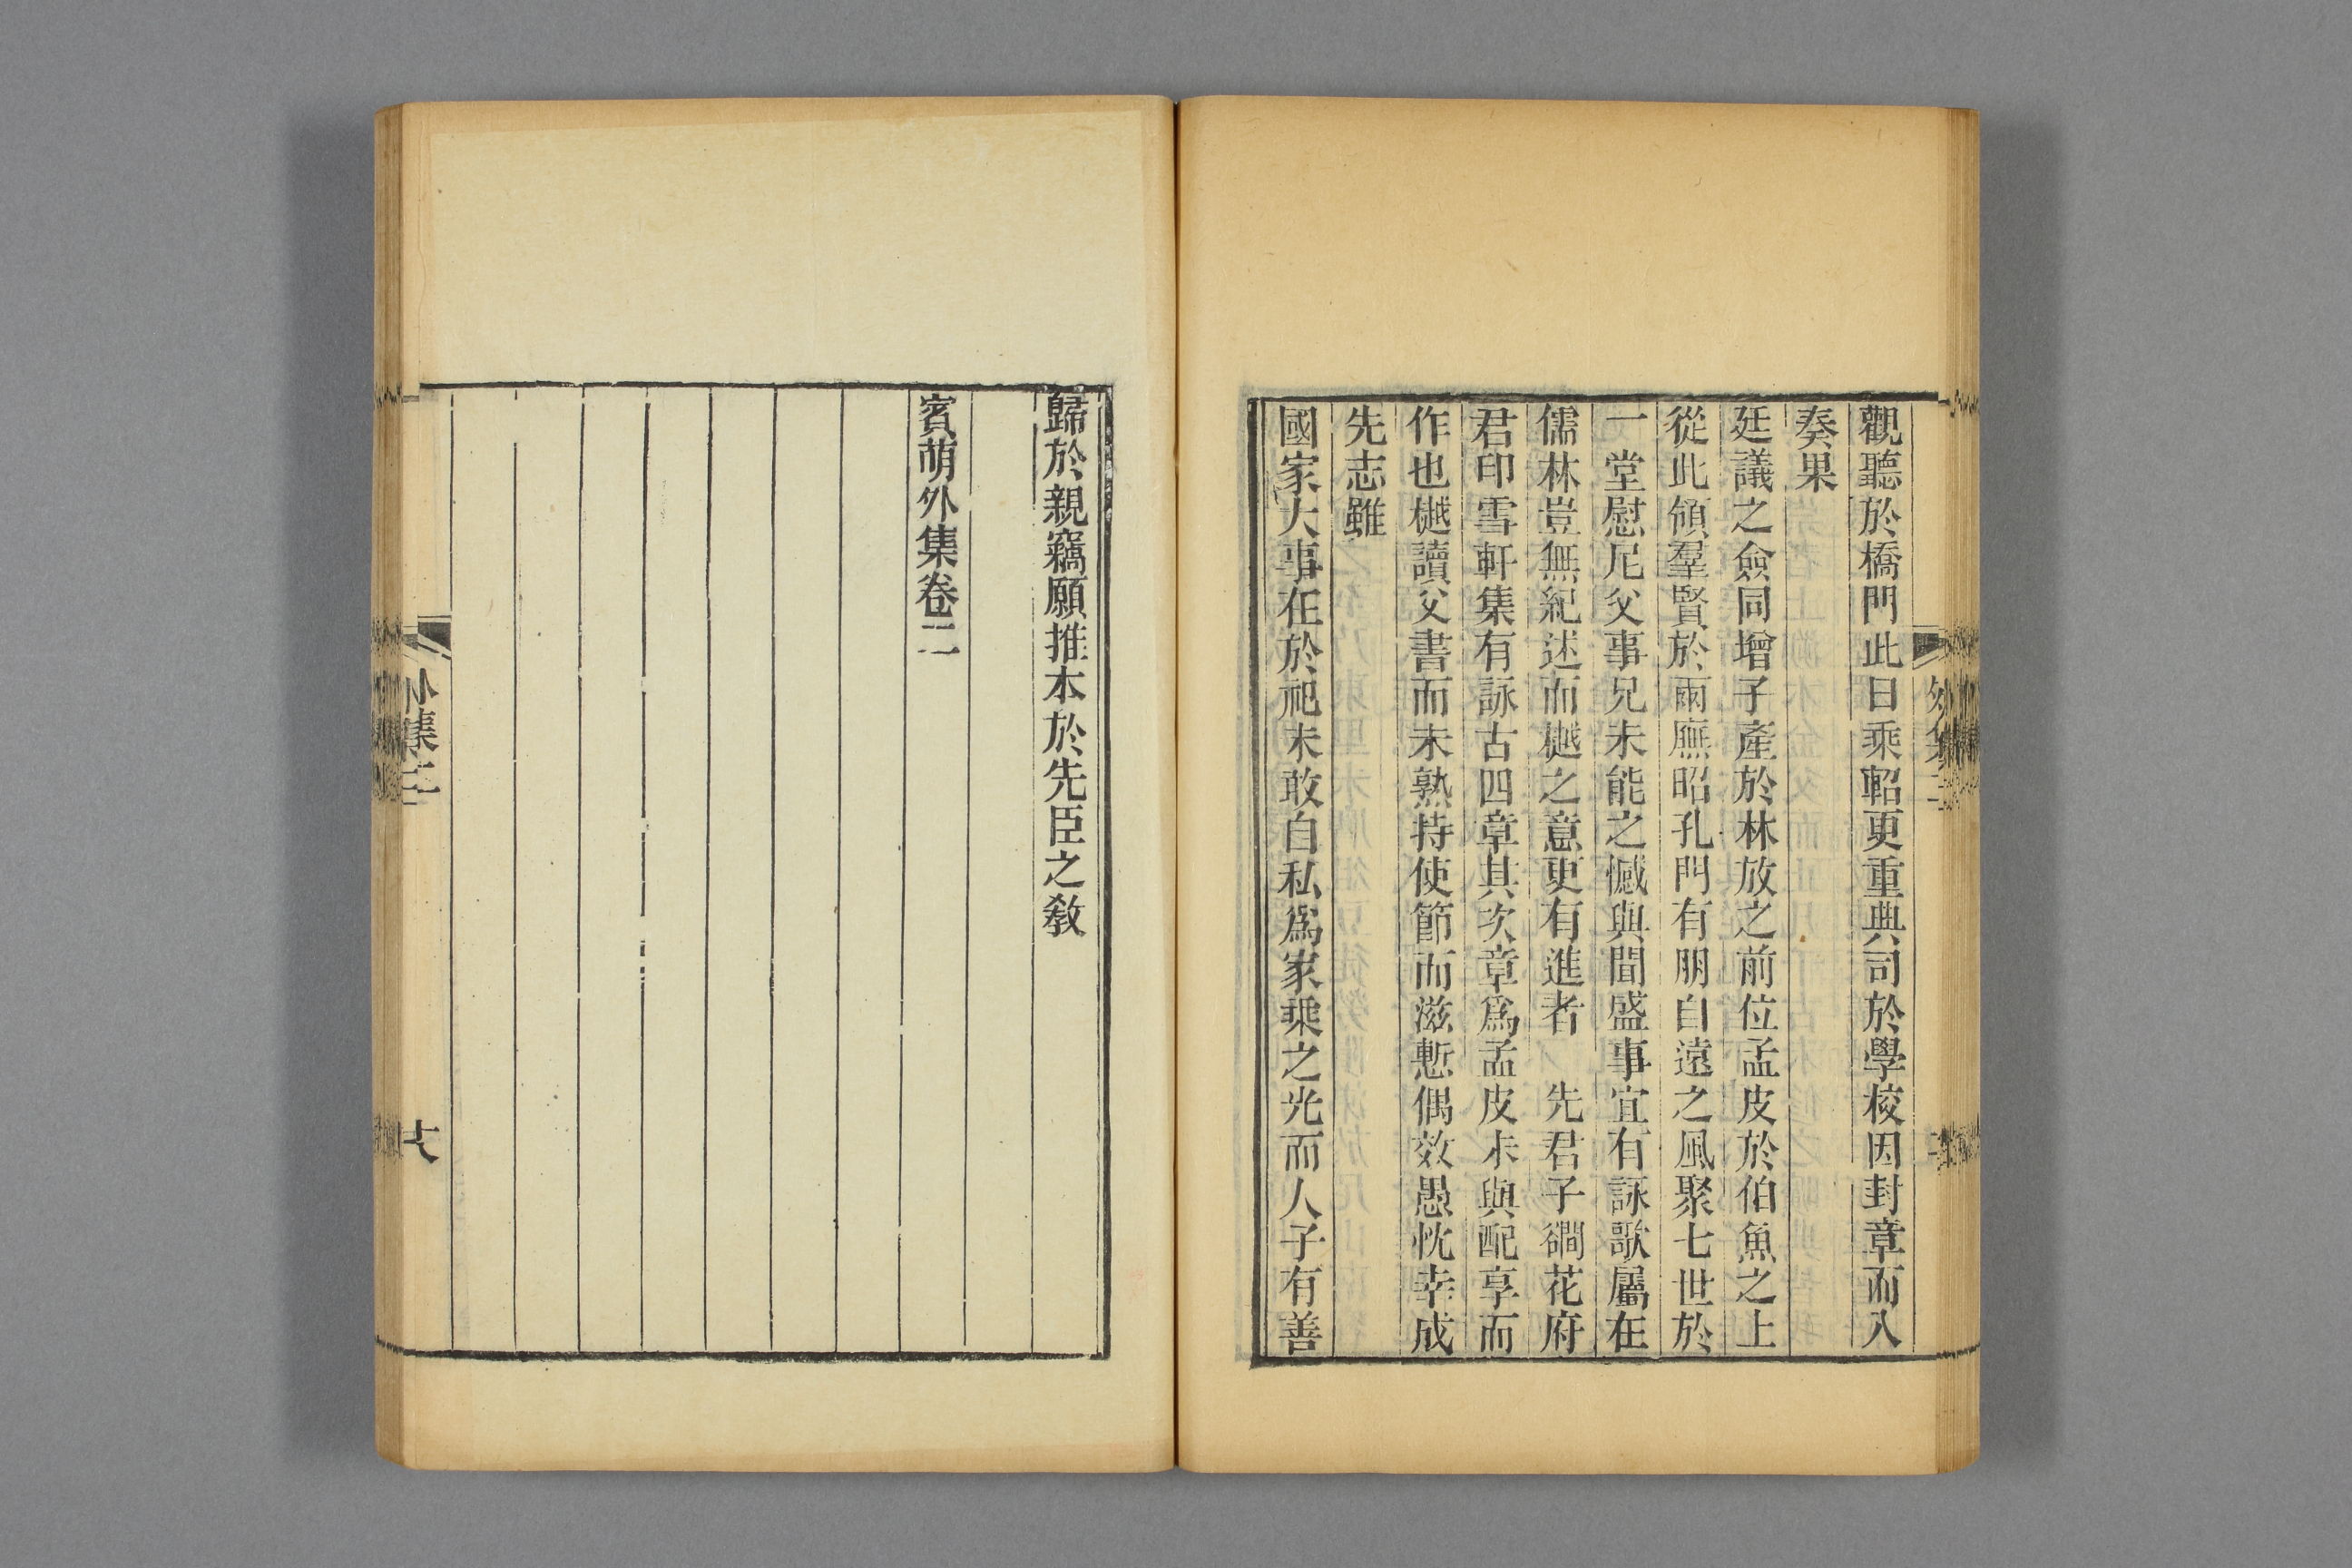 觀聽於橋門此日乘軺更重典司於學校因封章而入
奏果
廷議之僉同增子產於林放之前位孟皮於伯魚之上
從此領羣賢於兩廡昭孔門有朋自遠之風聚七世於
一堂慰尼父事兄未能之憾與聞盛事宜有詠歌屬在
儒林豈無紀述而樾之意更有進者　先君子磵花府
君印雪軒集有詠古四章其次章爲孟皮未與配享而
作也樾讀父書而未熟持使節而滋慙偶效愚忱幸成
先志雖
國家大事在於祀未敢自私爲家乘之光而人子有善
外集二
歸於親竊願推本於先臣之敎
賓萌外集卷二
外集二